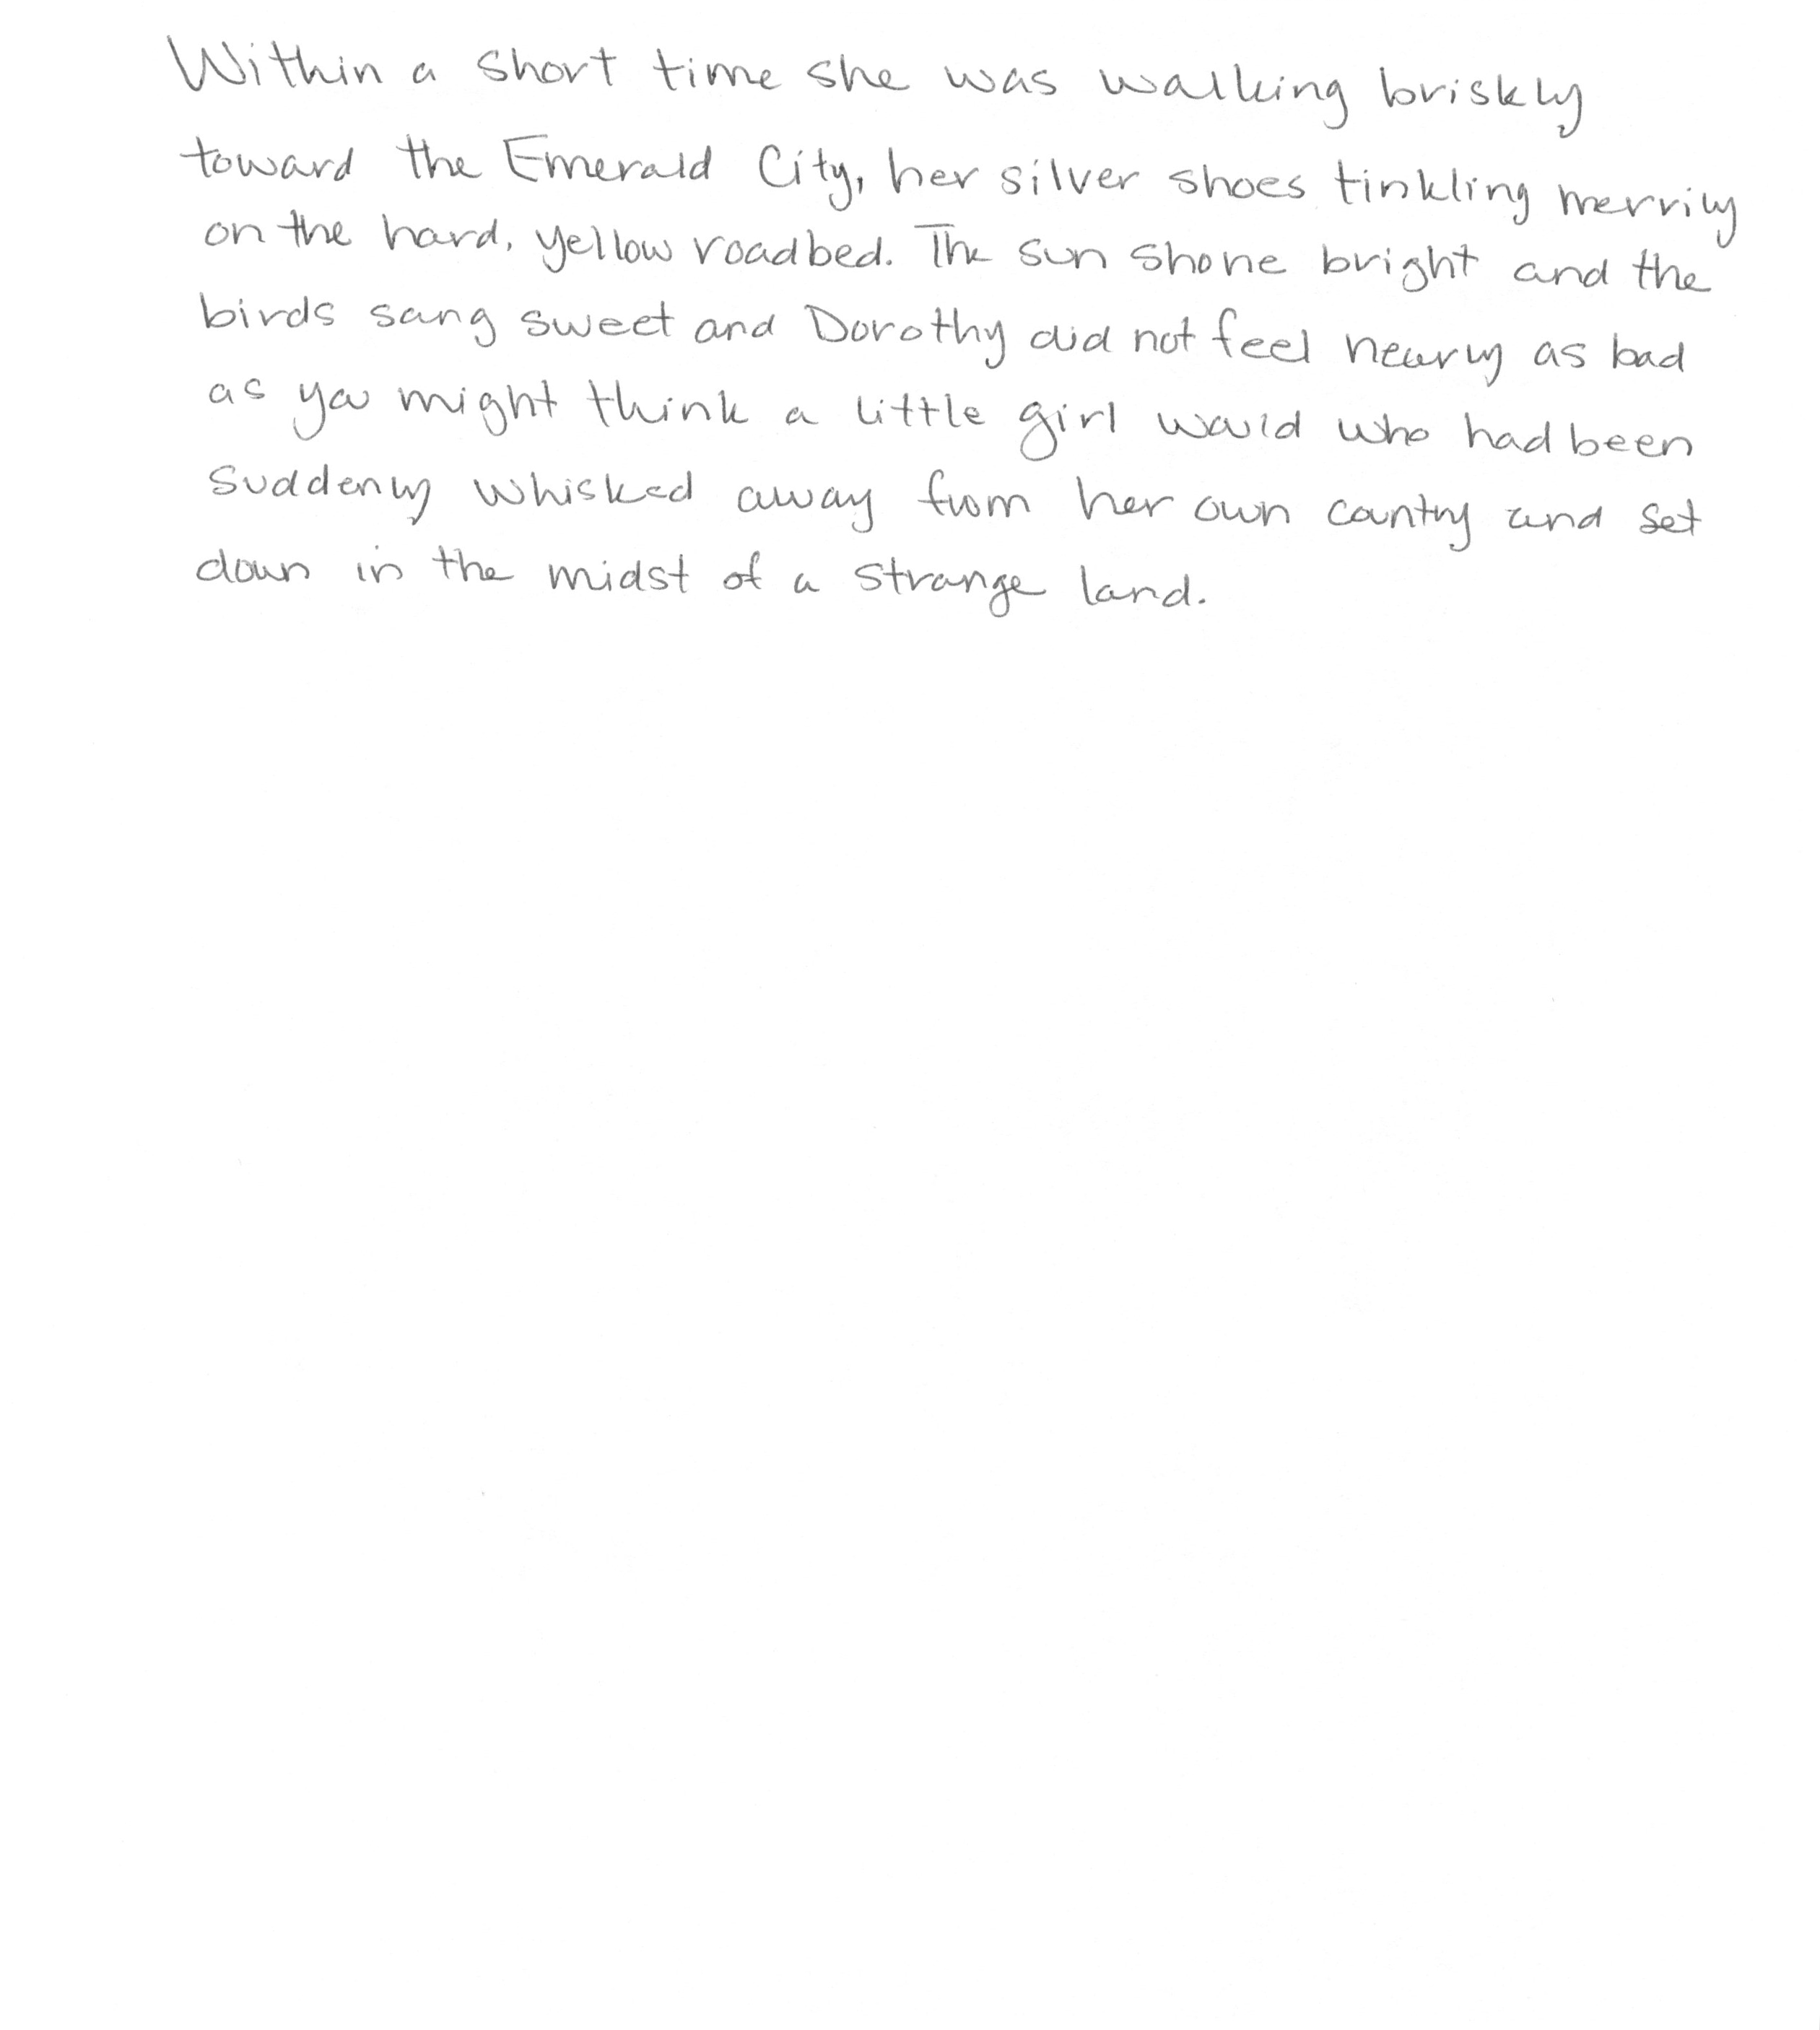 Within a short time she was walking briskly
toward the Emerald City, her silver shoes tinkling merrily
on the hard, yellow roadbed. The sun shone bright and the
birds sang sweet and Dorothy did not feel nearly as bad
as you might think a little girl would who had been
suddenly whisked away from her own country and set
down in the midst of a strange land.